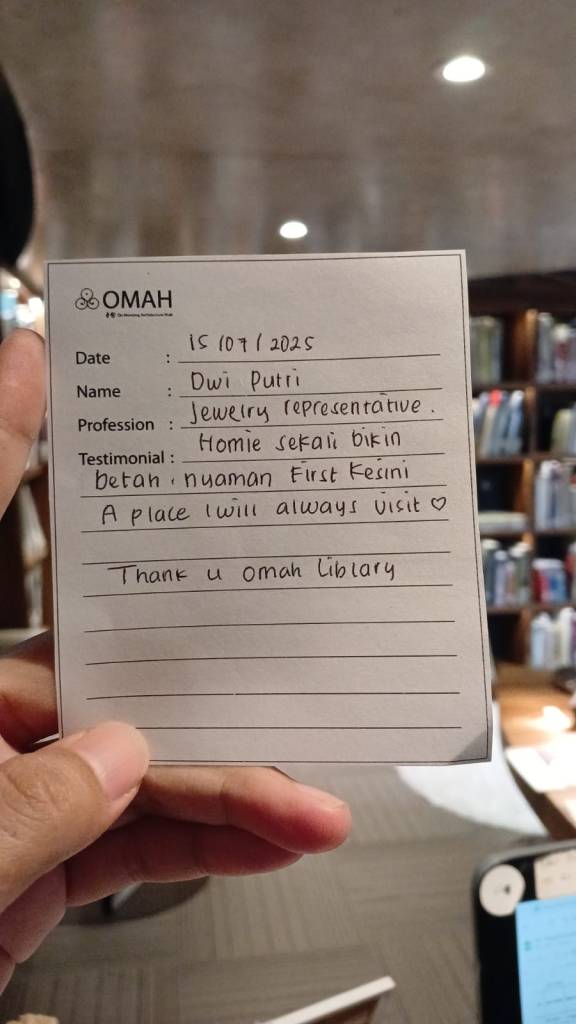 OMAH
Date : 15/07/2025
Name : Dwi Putri
Profession : Jewelry representative.
Testimonial : Homie sekali bikin
betah, nyaman First Kesini
A place I will always visit ♡
Thank u Omah Library